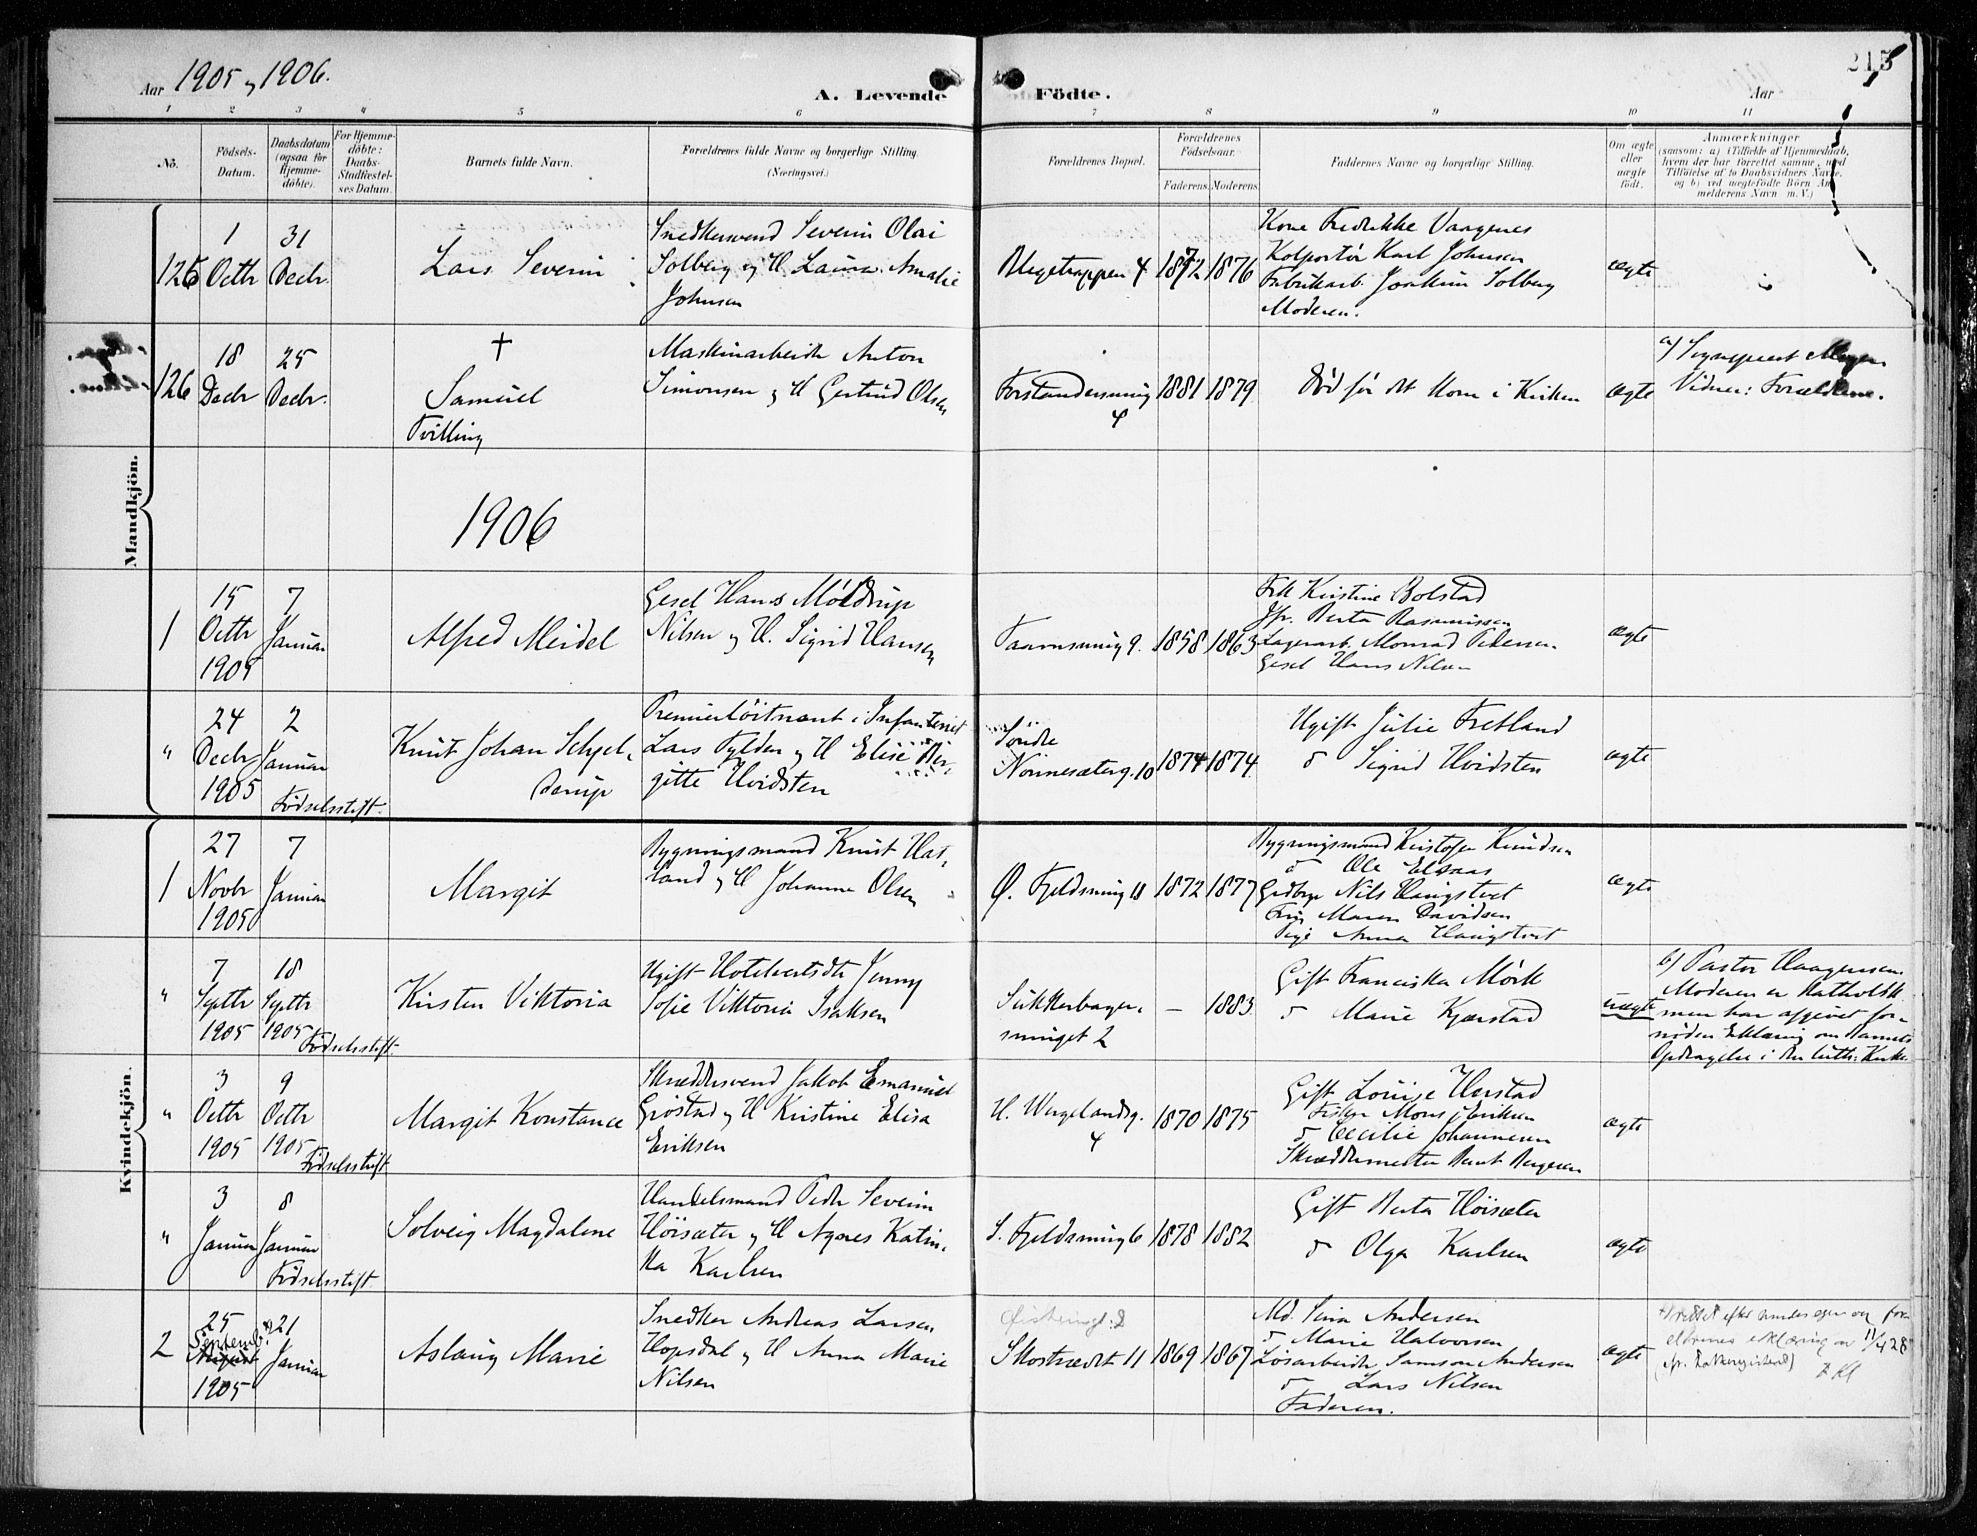 Aar 1905 og 1906.
A. Levende
Födte.
Aar
215
1 2 3 4 5 6 7 8 9 10 11
No.
Födsels-
Datum.
Daabsdatum
(ogsaa for
Hjemme-
döbte).
For Hjemme-
döbte:
Daabs-
Stadfæstel-
ses Datum.
Barnets fulde Navn.
Forældrenes fulde Navne og borgerlige Stilling.
(Næringsvei.)
Forældrenes Bopæl.
Forældrenes
Födselsaar.
Faderens.
Moderens.
Faddernes Navne og borgerlige Stilling.
Om ægte
eller
uægte
födt.
Anmærkninger
(saasom: a) i Tilfælde af Hjemmedaab,
hvem der har forrettet samme, med
Tilföielse af to Daabsvidners Navne,
og b) ved uægtefödte Börn An-
melderens Navn m. V.)
Mandkjön.
125
1
Octbr
31
Decbr.
Lars Severin
Snedkersvend Severin Olai
Solberg og H. Laura Amalie
Johnsen
Blegetrappen 4
1872
1876
Kone Fredrikke Vaagenes
Kolportör Karl Johnsen
Fabrikarb. Joakim Solberg
Moderen.
ægte
126
18
Decbr
25
Decbr.
†
Samuel
Tvilling
Maskinarbeider Anton
Simonsen og H Gertrud Olsen
Forstandersmug
4
1881
1879
Död för det kom i Kirken
ægte
a) Sognepræst Meyer
Vidner: Forældrene.
1906
1
15
Octbr
1905
7
Januar
Alfred Meidel
Gesel Hans Möldrup
Nilsen og H. Sigrid Hansen
Taarnsmug 9.
1858
1863
Frk Kristine Bolstad
Jfr. Berta Rasmussen
Lagerarb. Monrad Pedersen
Gesel Hans Nilsen
ægte
"
24
Decbr
1905
2
Januar
Födselsstift.
Knut Johan Schjel-
derup
Premierlöitnant i Infanteriet
Lars Fylden og H Elise Bir-
gitte Hvidsten
Söndre
Nonnesæterg. 10
1874
1874
Ugift Julie Fretland
do Sigrid Hvidsten
ægte
Kvindekjön.
1
27
Novbr
1905
7
Januar
Margit
Bygningsmand Knut Hat-
land og H Johanne Olsen
Ö. Fjeldsmug 11
1872
1877
Bygningsmand Kristofer Knudsen
do Ole Elsaas
Grdbr Nils Haugstvet
Frk Maren Davidsen
Pige Anna Haugstvet
ægte
"
7
Septbr
1905
18
Septbr
1905
Födselsstift
Kirsten Viktoria
Ugift Hotelvertsdtr Jenny
Sofie Viktoria Isaksen
Sukkerbager-
smuget 2
—
1883
Gift Franciska Mörk
do Marie Kjærstad
uægte
b) Pastor Haagensen.
Moderen er katholsk
men har afgivet for-
nöden Erklæring om Barnets
Opdragelse i den luth: Kirke
"
3
Octbr
1905
9
Octbr
1905
Födselsstift
Margit Konstance
Skræddersvend Jakob Emanuel
Gröstad og H Kristine Elisa
Eriksen
H. Wergelandsg.
4
1870
1875
Gift Louise Herstad
Fisker Mons Eriksen
do Cecilie Johannesen
Skræddermester Bernt Bergesen
ægte
"
3
Januar
8
Januar
Födselsstift
Solveig Magdalene
Handelsmand Peder Severin
Höisæter og H Agnes Katin-
ka Karlsen
S. Fjeldsmug 6
1878
1882
Gift Berta Höisæter
do Olga Karlsen
ægte
2
25
Septemb. x)
August
1905
21
Januar
Aslaug Marie
Snedker Andreas Larsen
Hopsdal og H Anna Marie
Nilsen
Skostrædet 11
1869
1867
Md. Sina Andersen
do Marie Halvorsen
Lösarbeider Samson Andersen
do Lars Nilsen
Faderen.
ægte
x) rettet efter hendes egen og for-
eldrenes erklæring av 11/4 28
(jfr. Dakkeregisteret)